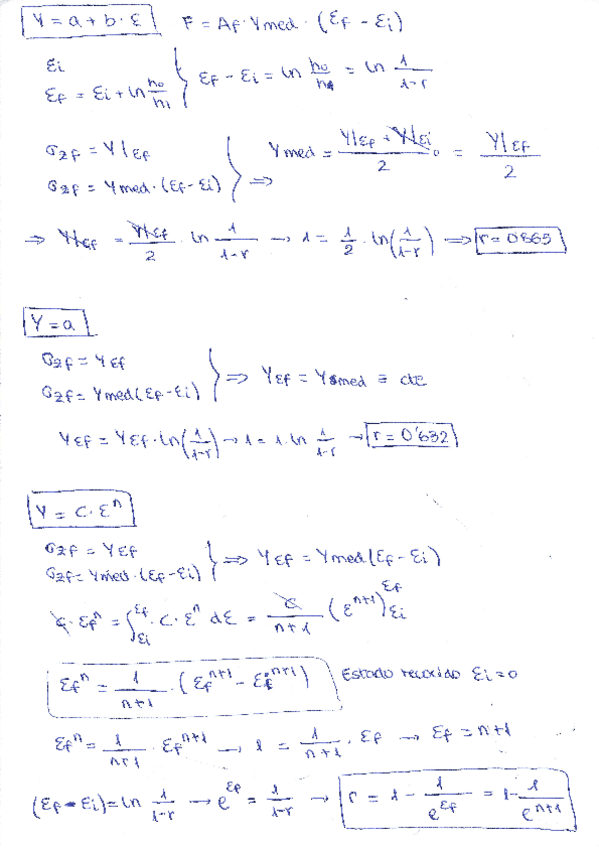 Y = a + b · ε   F = Af · Ymed · (εf - εi)
εi
εf = εi + ln h0/h1 } εf - εi = ln h0/hf = ln 1/(1-r)
σzf = Y|εf
σzf = Ymed · (εf - εi) } ⇒ Ymed = (Y|εf + Y|εi)/2 = Y|εf/2
⇒ Y|εf = Y|εf/2 · ln 1/(1-r) → 1 = 1/2 · ln(1/(1-r)) ⇒ r = 0'865
Y = a
σzf = Yεf
σzf = Ymed(εf - εi) } ⇒ Yεf = Ymed = cte
Yεf = Yεf · ln(1/(1-r)) → 1 = 1 · ln 1/(1-r) → r = 0'632
Y = C · ε^n
σzf = Yεf
σzf = Ymed · (εf - εi) } ⇒ Yεf = Ymed(εf - εi)
C · εf^n = ∫εi^εf · C · ε^n dε = C/(n+1) (ε^(n+1))εi^εf
εf^n = 1/(n+1) · (εf^(n+1) - εi^(n+1))   Estado recocido εi = 0
εf^n = 1/(n+1) · εf^(n+1) → 1 = 1/(n+1) · εf → εf = n+1
(εf - εi) = ln 1/(1-r) → e^εf = 1/(1-r) → r = 1 - 1/e^εf = 1 - 1/e^(n+1)